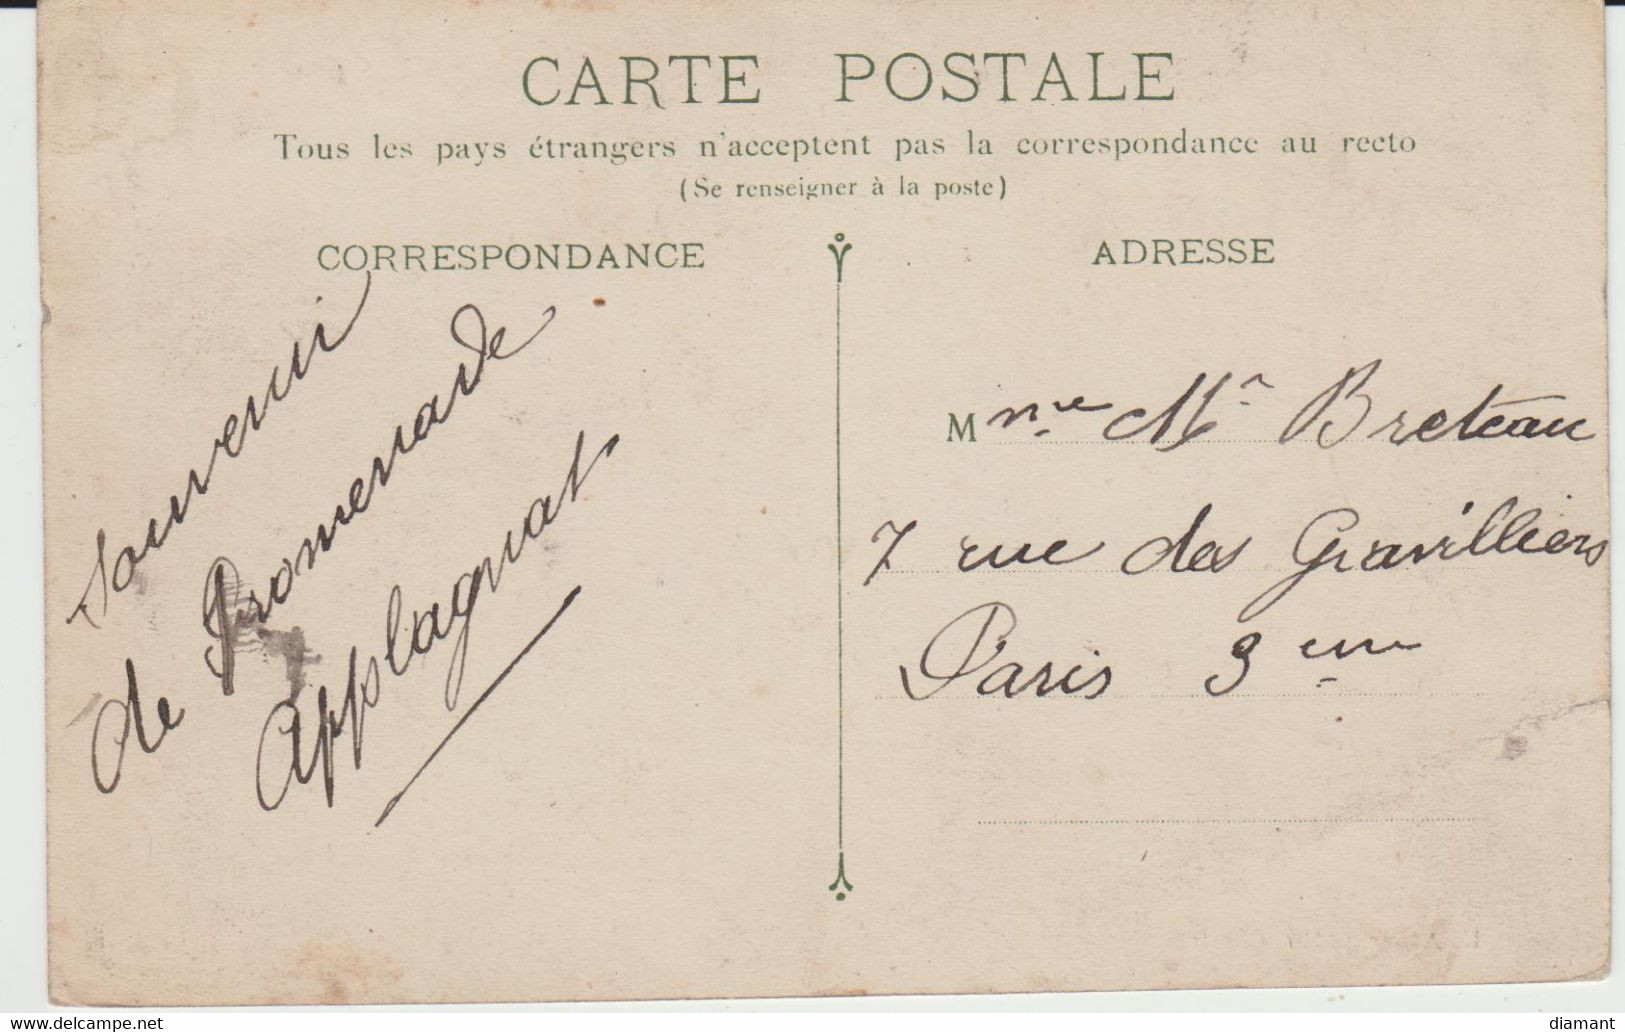 CARTE POSTALE
Tous les pays étrangers n'acceptent pas la correspondance au recto
(Se renseigner à la poste)
CORRESPONDANCE
ADRESSE
Souvenir
de Promenade
Applagnat
Mme Mr Breteau
7 rue des Gravilliers
Paris 3eme
www.delcampe.net
diamant